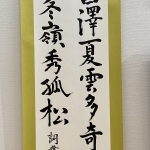 澤夏雲多奇
冬嶺秀孤松